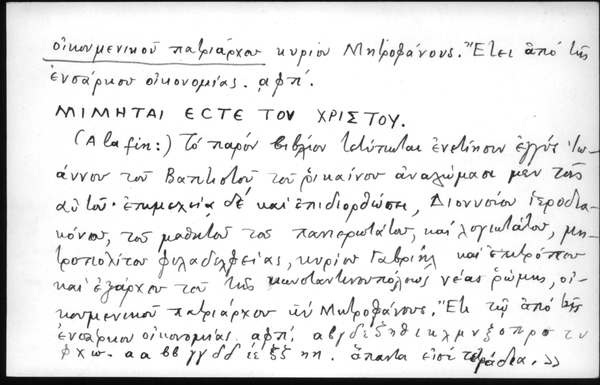 οἰκουμενικοῦ πατριάρχου κυρίου Μητροφάνους. Ἔτει ἀπό τῆς
ἐνσάρκου οἰκονομίας. ͵αφπʹ.
ΜΙΜΗΤΑΙ ΕCΤΕ ΤΟΥ ΧΡΙΣΤΟΥ.
(A la fin:) Τό παρόν βιβλίον τετύπωται ἐνετίησιν ἐγγύς Ἰω-
άννου τοῦ Βαπτιστοῦ τοῦ δικαίνου ἀναλώμασι μεν τοῖς
αὐτοῦ· ἐπιμελείᾳ δέ καί ἐπιδιορθώσει, Διονυσίου ἱεροδια-
κόνου, τοῦ μαθητοῦ τοῦ πανιερωτάτου, καί λογιωτάτου, μη-
τροπολίτου φιλαδελφείας, κυρίου Γαβριήλ καί ἐπιτρόπου
καί ἐξάρχου τοῦ τῆς κωνσταντινουπόλεως νέας ῥώμης, οἰ-
κουμενικοῦ πατριάρχου Μητροφάνους. Ἔτει τῷ ἀπό τῆς
ἐνσάρκου οἰκονομίας. ͵αφπʹ. αβγδεζηθικλμνξοπρστυ
φχω. αα ββ γγ δδ εε ζζ ηη. ἅπαντα εἰσί τετράδια. >>